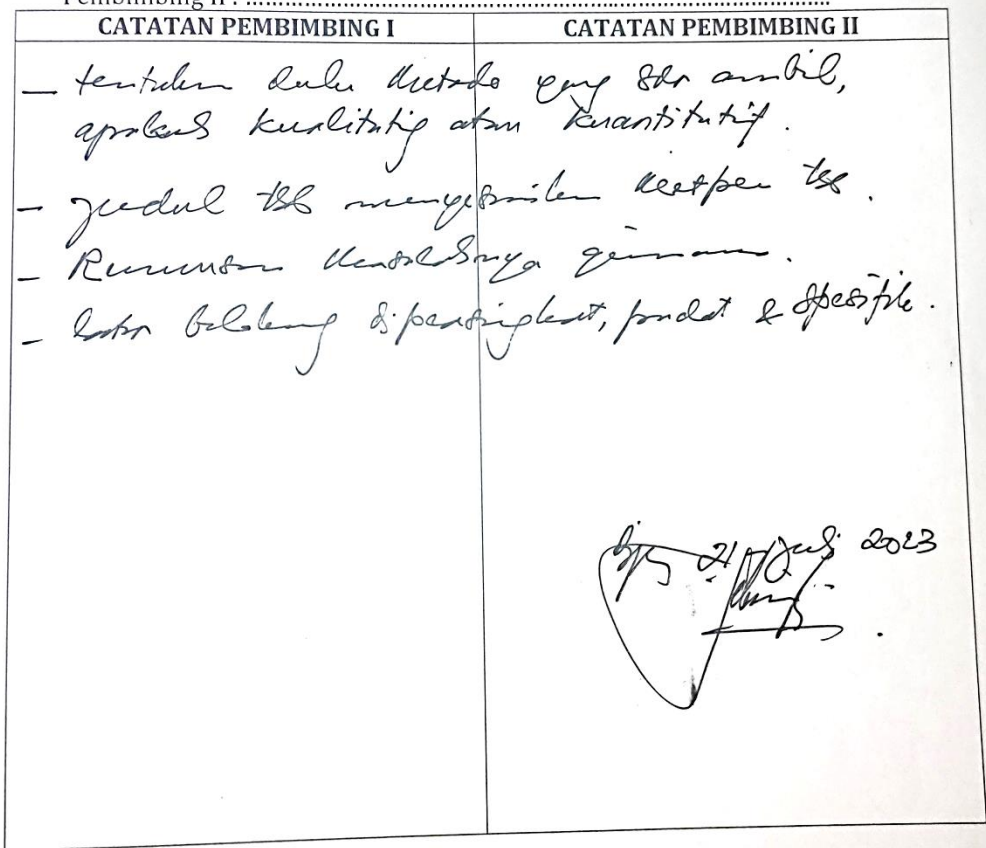 Pembimbing II : ..........................................................................................
CATATAN PEMBIMBING I
CATATAN PEMBIMBING II
– tentukan dulu Metode yang Sdr ambil,
apakah kualitatif atau kuantitatif.
– Judul tsb tsb.
– Rumusan Masalahnya gimana.
– Latar belakang dipersingkat, padat & spesifik.
21 Juli 2023